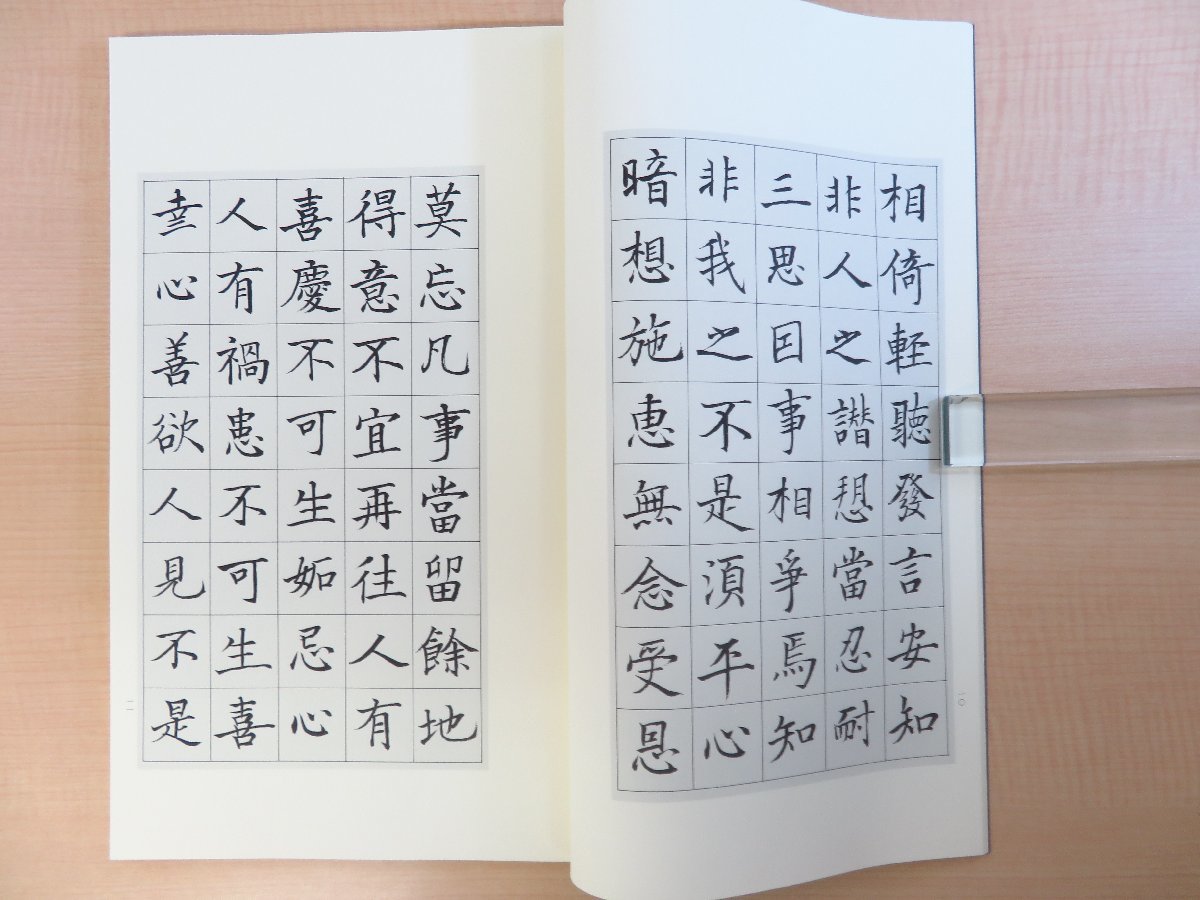 相倚軽聽發言安知
非人之譖愬當忍耐
三思因事相爭焉知
非我之不是須平心
暗想施惠無念受恩
一〇
莫忘凡事當留餘地
得意不宜再往人有
喜慶不可生妬忌心
人有禍患不可生喜
幸心善欲人見不是
一一